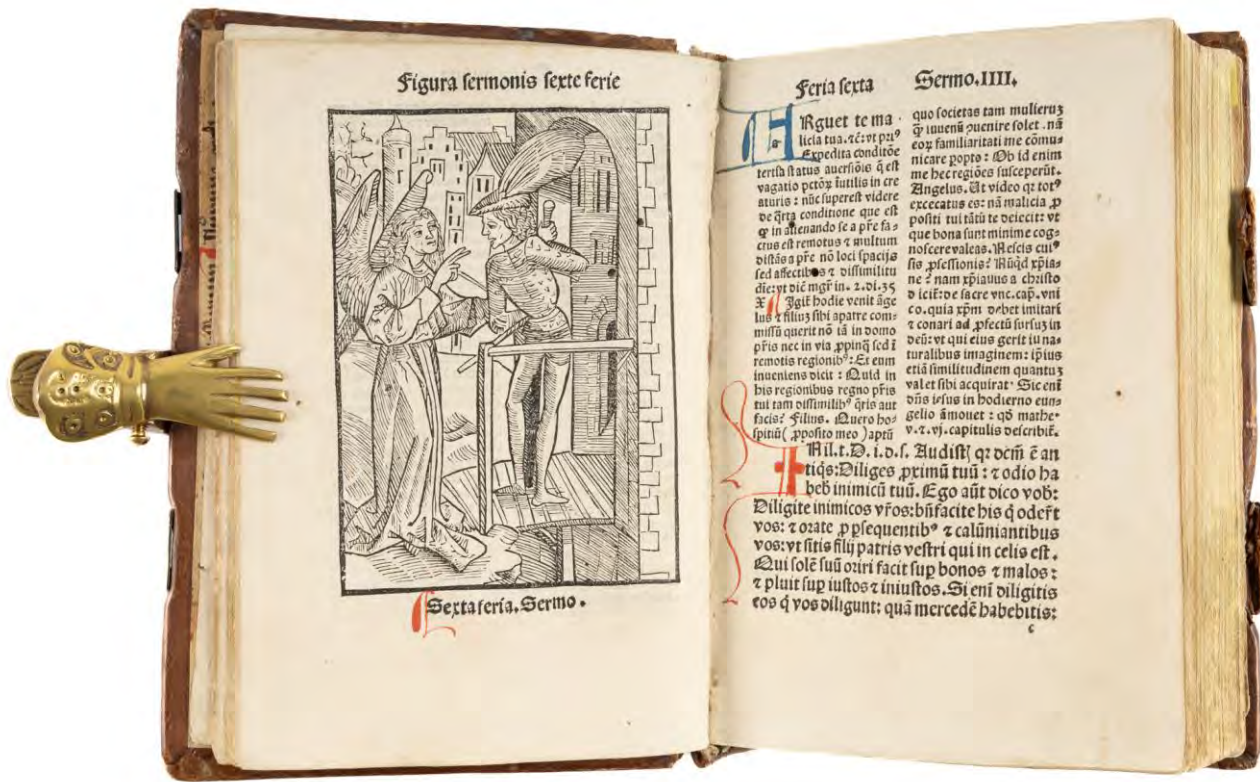 Figura sermonis sexte ferie
Sexta feria. Sermo.
Feria sexta Sermo.IIII.
ARguet te ma
licia tua. ⁊c̄: vt pri⁹
Expedita conditōe
tertia status auersiōis q̄ est
vagatio pctōꝝ iutilis in cre
aturis: nūc superest videre
de q̄rta conditione que est
ꝙ in alienando se a pr̄e fa⸗
ctus est remotus ⁊ multum
distās a pr̄e nō loci spacijs
sed affectib⁹ ⁊ dissimilitu
dīe: vt dic̄ mgr̄ in. 2. di. 35
X Igit̄ hodie venit āge
lus ⁊ filiuȝ sibi a patre com⸗
missū querit nō iā in domo
pr̄is nec in via ꝓpinq̄ sed ī
remotis regionib⁹: Et eum
inueniens dicit: Quid in
his regionibus regno pr̄is
tui tam dissimilib⁹ q̄ris aut
facis? Filius. Quero ho⸗
spitiū (ꝓposito meo) aptū
quo societas tam mulieruȝ
ꝙ̄ iuuenū ꝓuenire solet. nā
eoꝝ familiaritati me cōmu⸗
nicare ꝓpto: Ob id enim
me hec regiōes susceperūt.
Angelus. Ut video qꝛ tot⁹
excecatus es: nā malicia ꝓ
positi tui tātū te deiecit: vt
que bona sunt minime cog⸗
noscere valeas. Nescis cui⁹
sis ꝓfessionis? Nūqd xp̄ia⸗
ne? nam xp̄ianus a christo
dicit̄: de sacre vnc. cap. vni
co. quia xp̄m debet imitari
⁊ conari ad ꝓfectū sursuȝ in
deū: vt qui eius gerit iu na⸗
turalibus imaginem: ip̄ius
etiā similitudinem quantuȝ
valet sibi acquirat. Sic enī
dn̄s iesus in hodierno euan⸗
gelio āmouet: qd̄ mathe.
v. ⁊. vj. capitulis describit̄.
Nil. t. D. i. d. s. Audistȷ qꝛ dcm̄ ē an
tiq̄s: Diliges ꝓximū tuū: ⁊ odio ha
beb̄ inimicū tuū. Ego aūt dico vob̄:
Diligite inimicos vr̄os: bn̄facite his q̄ oder̄t
vos: ⁊ orate ꝓ ꝑsequentib⁹ ⁊ calūniantibus
vos: vt sitis filij patris vestri qui in celis est.
Qui solē suū oriri facit suꝑ bonos ⁊ malos:
⁊ pluit suꝑ iustos ⁊ iniustos. Si enī diligitis
eos q̄ vos diligunt: quā mercedē habebitis:
c